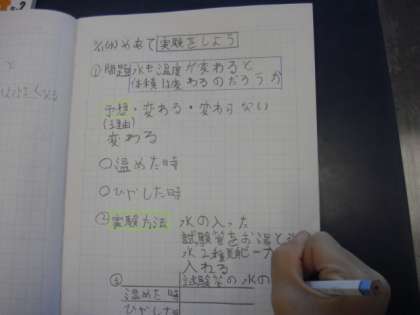 めあて 実験をしよう
① 問題 水も温度が変わると
体積は変わるのだろうか
予想・変わる・変わらない
(理由)
変わる
○温めた時
○ひやした時
② 実験方法 水の入った
試験管をお湯と
水2種類
入れる
③ 試験管の水の
温めた時
ひやした時